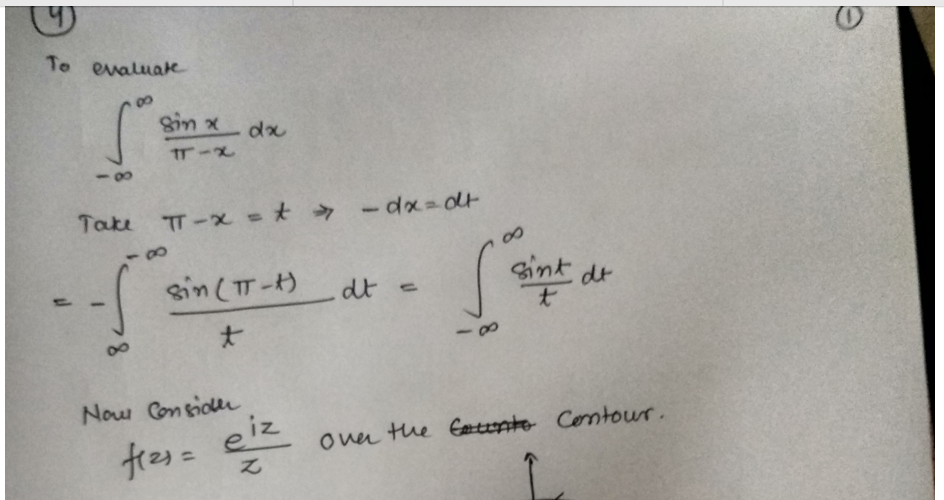 4
①
To evaluate
∫_{-∞}^{∞} sin x / (π - x) dx
Take π - x = t ⇒ - dx = dt
= - ∫_{∞}^{-∞} sin(π - t) / t dt = ∫_{-∞}^{∞} sin t / t dt
Now Consider
f(z) = e^{iz} / z over the Contour.